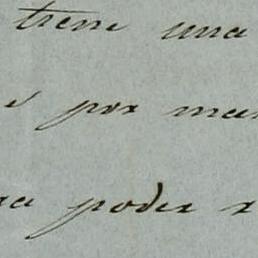 tiene una
s por mar
ra poder